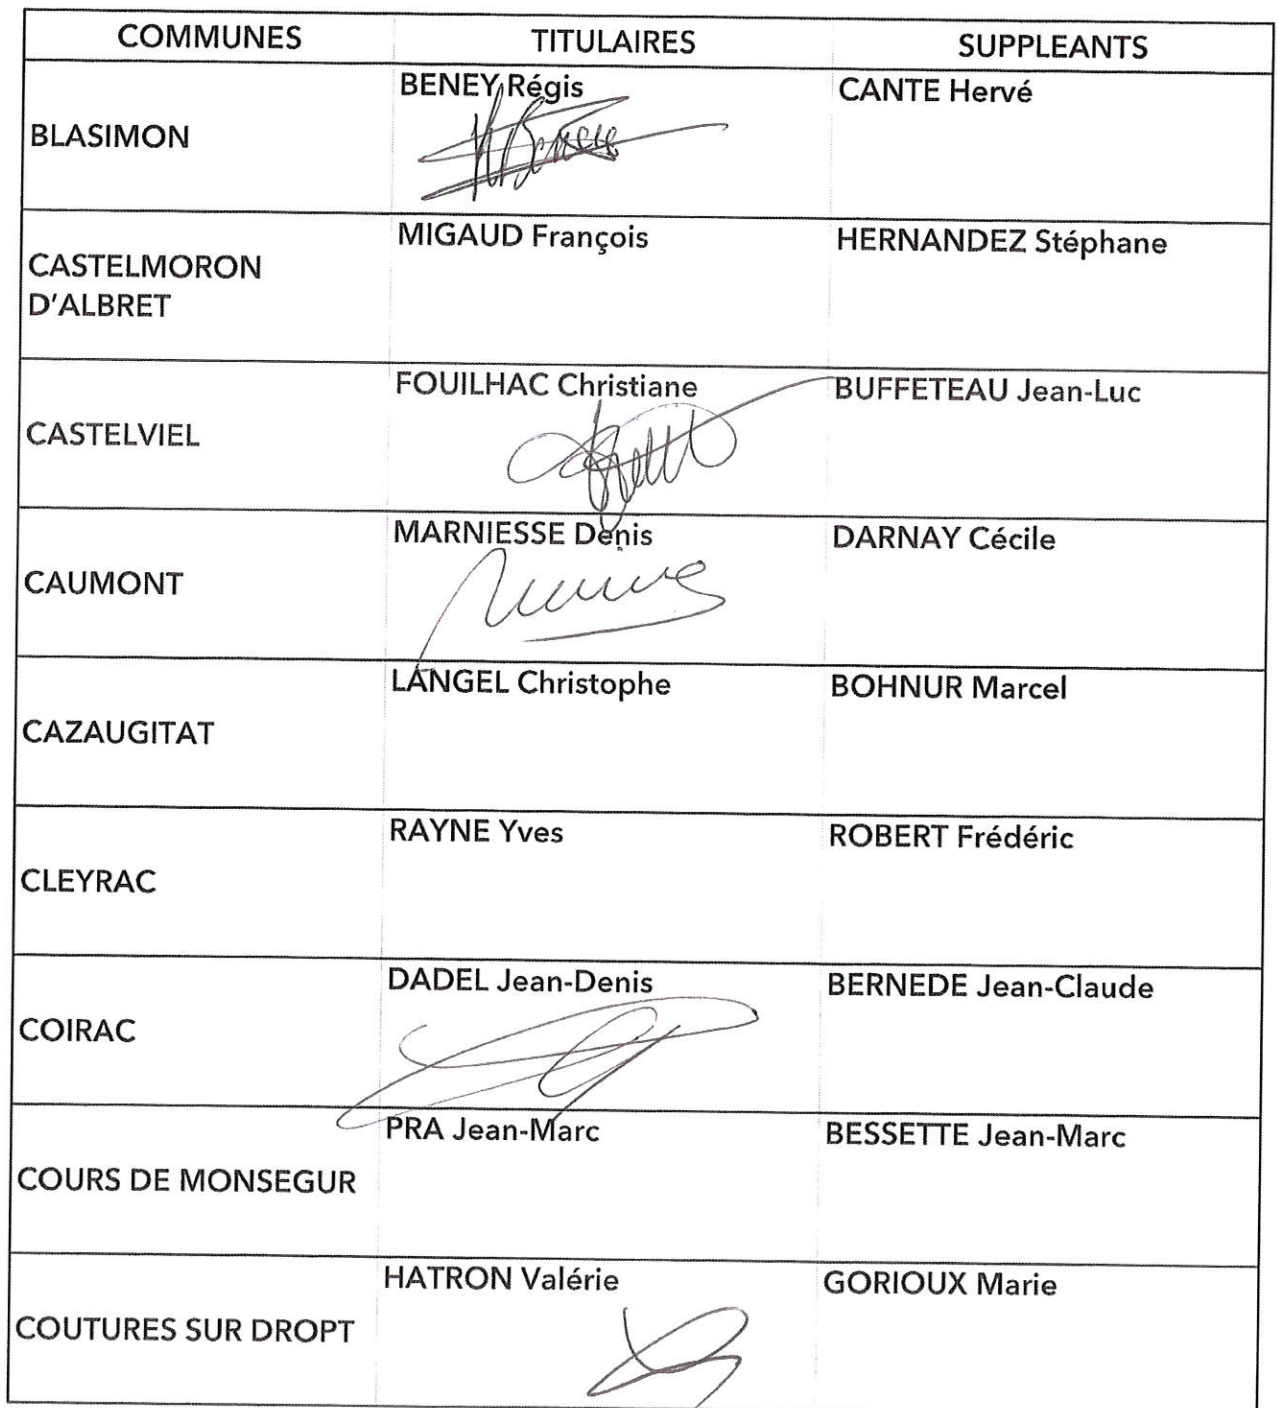 COMMUNES TITULAIRES SUPPLEANTS
BLASIMON BENEY Régis CANTE Hervé
CASTELMORON D'ALBRET MIGAUD François HERNANDEZ Stéphane
CASTELVIEL FOUILHAC Christiane BUFFETEAU Jean-Luc
CAUMONT MARNIESSE Denis DARNAY Cécile
CAZAUGITAT LANGEL Christophe BOHNUR Marcel
CLEYRAC RAYNE Yves ROBERT Frédéric
COIRAC DADEL Jean-Denis BERNEDE Jean-Claude
COURS DE MONSEGUR PRA Jean-Marc BESSETTE Jean-Marc
COUTURES SUR DROPT HATRON Valérie GORIOUX Marie